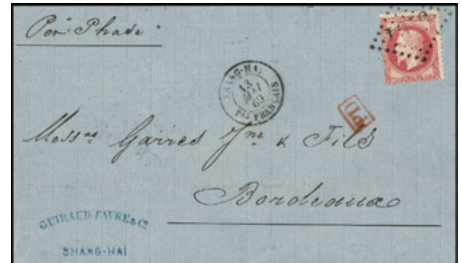 Per Phase
SHANG-HAI
13
MAI
69
PD
Messrs Garres Jne & Fils
Bordeaux
GUIRAUD FAVRE & Cie
SHANG-HAI